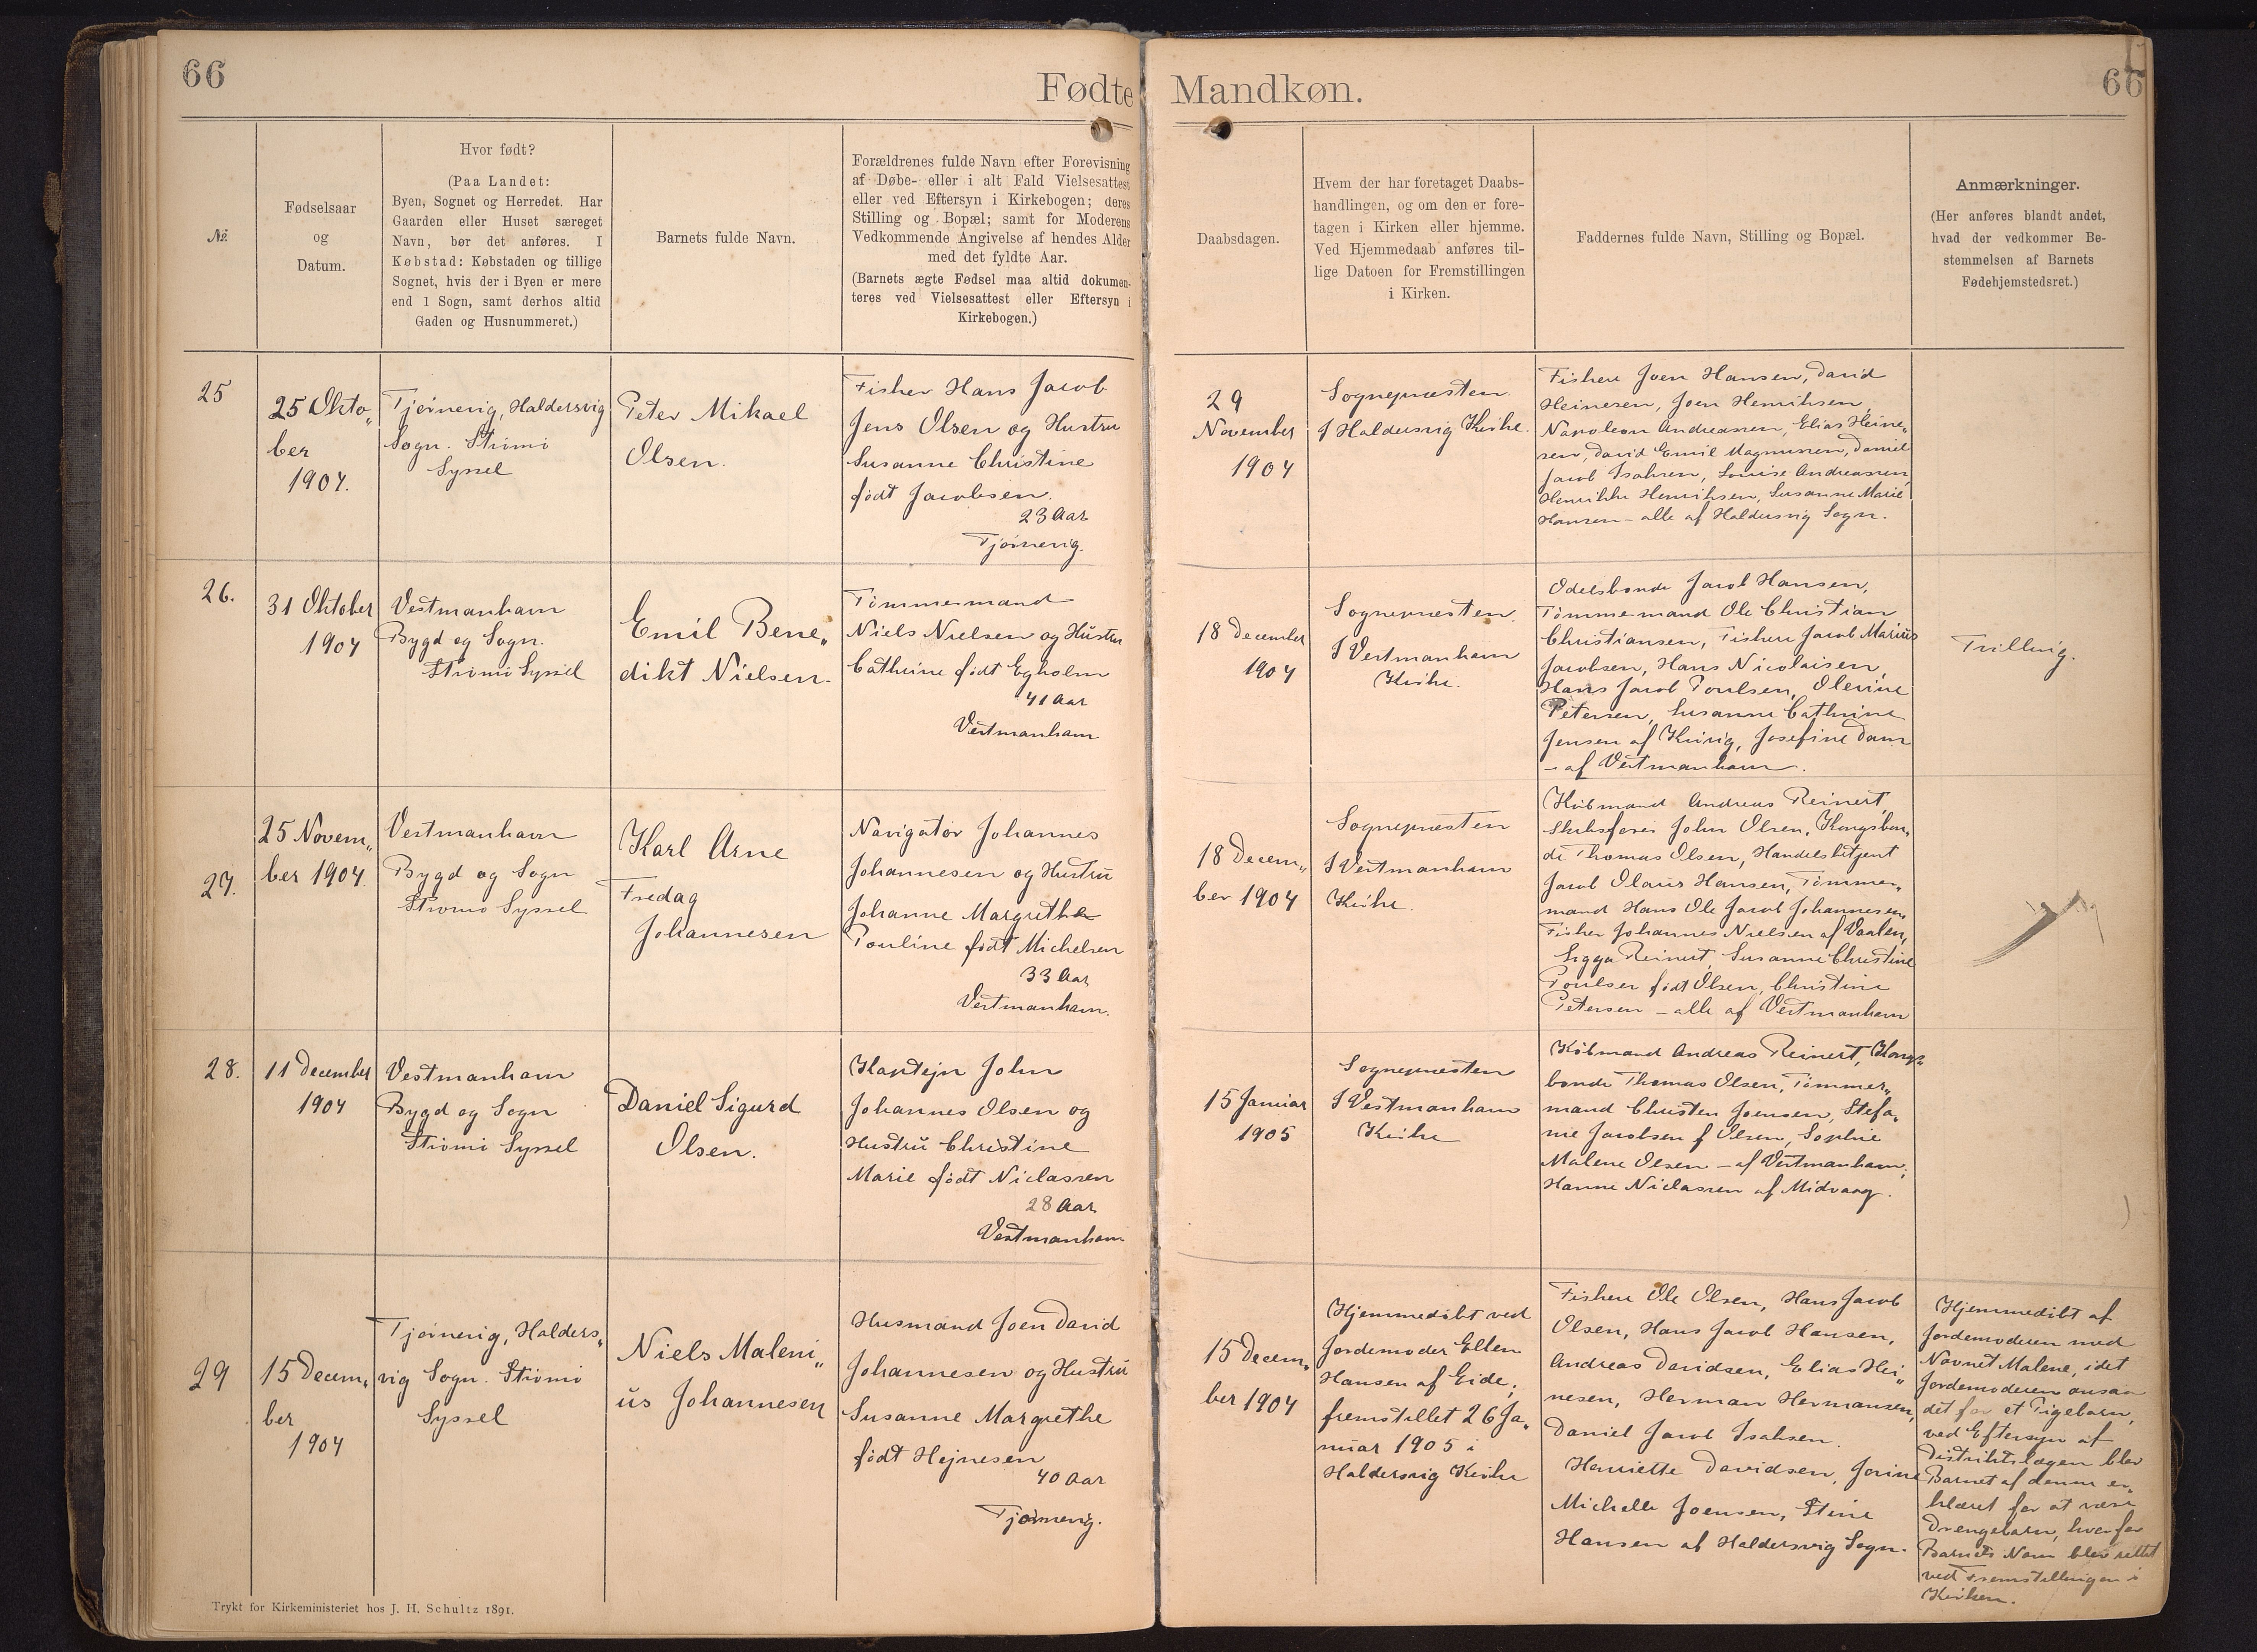 66
Fødte
Mandkøn.
66
№.
Fødselsaar
og
Datum.
Hvor født?
(Paa Landet:
Byen, Sognet og Herredet. Har
Gaarden eller Huset særeget
Navn, bør det anføres. I
Købstad: Købstaden og tillige
Sognet, hvis der i Byen er mere
end 1 Sogn, samt derhos altid
Gaden og Husnummeret.)
Barnets fulde Navn.
Forældrenes fulde Navn efter Forevisning
af Døbe- eller i alt Fald Vielsesattest
eller ved Eftersyn i Kirkebogen; deres
Stilling og Bopæl; samt for Moderens
Vedkommende Angivelse af hendes Alder
med det fyldte Aar.
(Barnets ægte Fødsel maa altid dokumen-
teres ved Vielsesattest eller Eftersyn i
Kirkebogen.)
Daabsdagen.
Hvem der har foretaget Daabs-
handlingen, og om den er fore-
tagen i Kirken eller hjemme.
Ved Hjemmedaab anføres til-
lige Datoen for Fremstillingen
i Kirken.
Faddernes fulde Navn, Stilling og Bopæl.
Anmærkninger.
(Her anføres blandt andet,
hvad der vedkommer Be-
stemmelsen af Barnets
Fødehjemstedsret.)
25
25 Okto„
ber
1904.
Tjørnevig, Haldersvig
Sogn. Strømø
Syssel
Peter Mikael
Olsen.
Fisker Hans Jacob
Jens Olsen og Hustru
Susanne Christine
født Jacobsen.
23 Aar
Tjørnevig.
29
November
1904
Sognepræsten
I Haldersvig Kirke.
Fiskere Joen Hansen, David
Heinesen, Joen Henriksen,
Napoleon Andreassen, Elias Heine„
sen, David Emil Magnussen, Daniel
Jacob Isaksen, Louise Andreassen,
Henrikke Henriksen, Susanne Marie
Hansen – alle af Haldersvig Sogn.
26.
31 Oktober
1904
Vestmanhavn
Bygd og Sogn.
Strømø Syssel
Emil Bene„
dikt Nielsen.
Tømmermand
Niels Nielsen og Hustru
Cathrine født Egholm
41 Aar
Vestmanhavn
18 December
1904
Sognepræsten.
I Vestmanhavn
Kirke.
Odelsbonde Jacob Hansen,
Tømmermand Ole Christian
Christiansen, Fiskere Jacob Marius
Jacobsen, Hans Nicolaisen,
Hans Jacob Poulsen, Olevine
Petersen, Susanne Cathrine
Jensen af Kvivig, Josefine Dam
– af Vestmanhavn.
Trilling.
27.
25 Novem„
ber 1904.
Vestmanhavn
Bygd og Sogn
Strømø Syssel
Karl Arne
Fredag
Johannesen
Navigatør Johannes
Johannesen og Hustru
Johanne Margrethe
Pouline født Michelsen
33 Aar
Vestmanhavn.
18 Decem„
ber 1904
Sognepræsten
I Vestmanhavn
Kirke.
Købmand Andreas Reinert,
Skibsfører John Olsen, Kongsbon„
de Thomas Olsen, Handelsbetjent
Jacob Olaus Hansen, Tømmer„
mand Hans Ole Jacob Johannesen,
Fisker Johannes Nielsen af Vaalen,
Sigga Reinert, Susanne Christine
Poulsen født Olsen, Christine
Petersen – alle af Vestmanhavn
28.
11 December
1904
Vestmanhavn
Bygd og Sogn
Strømø Syssel
Daniel Sigurd
Olsen.
Kaptejn John
Johannes Olsen og
Hustru Christine
Marie født Niclassen
28 Aar
Vestmanhavn
15 Januar
1905
Sognepræsten
I Vestmanhavn
Kirke
Købmand Andreas Reinert, Kongs„
bonde Thomas Olsen, Tømmer„
mand Christen Joensen, Stefa„
nie Jacobsen f Olsen, Sophie
Malene Olsen – af Vestmanhavn;
Hanne Niclassen af Midvaag.
29
15 Decem„
ber
1904
Tjørnevig, Halders„
vig Sogn. Strømø
Syssel
Niels Maleni„
us Johannesen
Husmand Joen David
Johannesen og Hustru
Susanne Margrethe
født Hejnesen
40 Aar
Tjørnevig.
15 Decem„
ber 1904
Hjemmedøbt ved
Jordemoder Ellen
Hansen af Eide;
fremstillet 26 Ja„
nuar 1905 i
Haldersvig Kirke
Fiskere Ole Olsen, Hans Jacob
Olsen, Hans Jacob Hansen,
Andreas Davidsen, Elias Hei„
nesen, Herman Hermansen,
Daniel Jacob Isaksen.
Henriette Davidsen, Jorine
Michelle Joensen, Stine
Hansen af Haldersvig Sogn.
Hjemmedøbt af
Jordemoderen med
Navnet Malene, idet
Jordemoderen ansaa
det for et Pigebarn,
ved Eftersyn af
Distriktslægen blev
Barnet af denne er„
klæret for at være
Drengebarn, hvorfor
Barnets Navn blev rettet
ved Fremstillingen i
Kirken.
Trykt for Kirkeministeriet hos J. H. Schultz 1891.